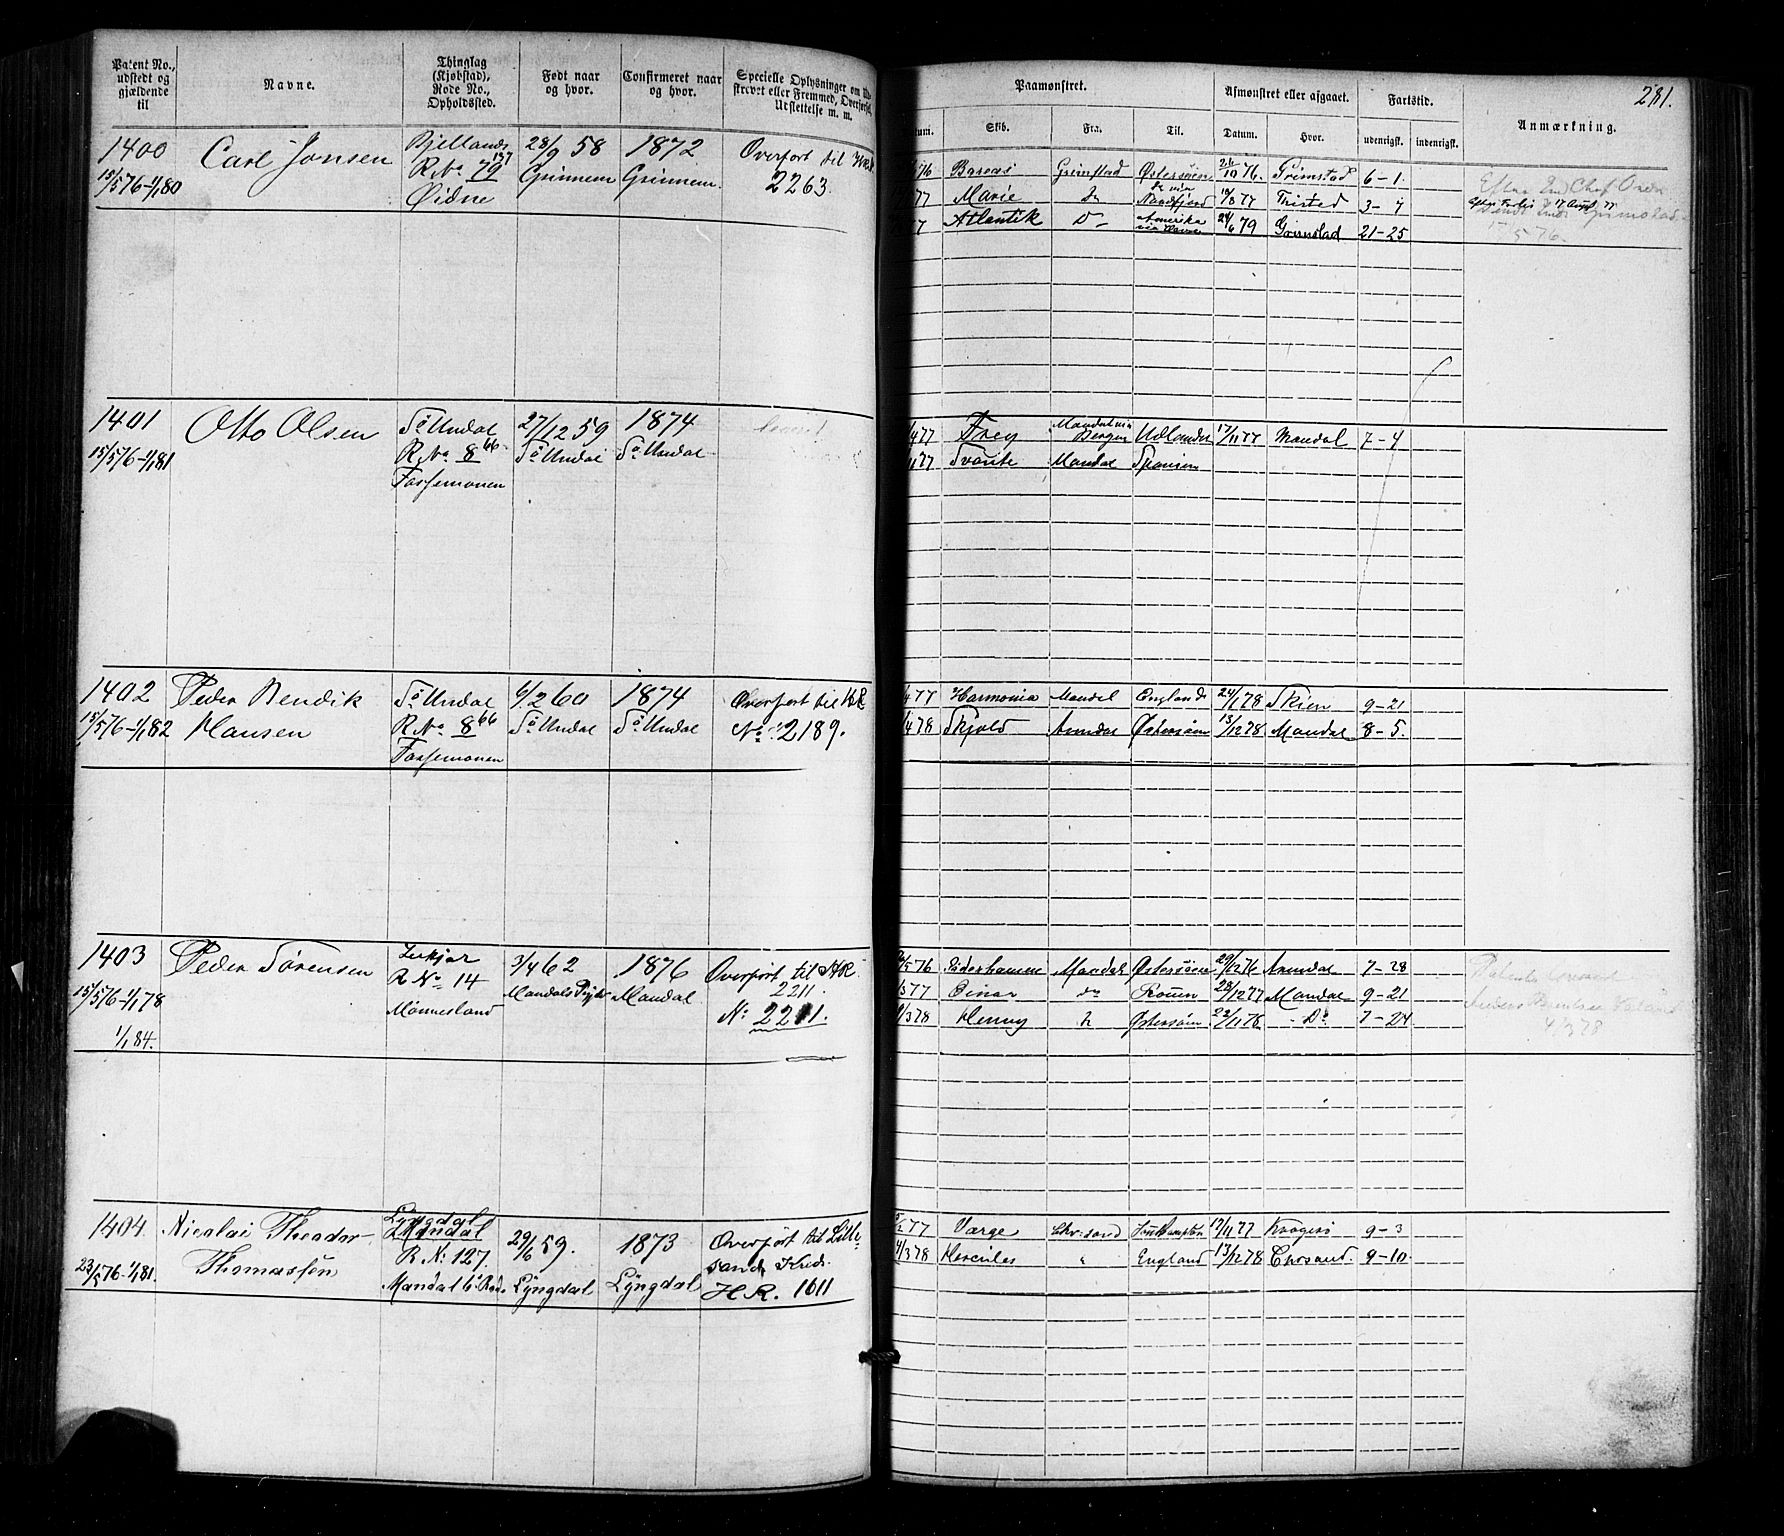 Patent No., udstedt og gjældende til
Navne.
Thinglag (Kjøbstad), Rode No., Opholdssted.
Født naar og hvor.
Confirmeret naar og hvor.
Specielle Oplysninger om
strevet eller Fremmed, Overførsel,
Udslettelse m. m.
Paamønstret.
Afmønstret eller afgaaet.
Fartstid.
Anmærkning.
281.
Skib.
Fra.
Til.
Datum.
Hvor.
udenrigsk.
indenrigsk.
1400
15/5 76-1/1 80
Carl Jonsen
Bjellands
R No 79 137
Øidne
28/9 58
Grinnem
1872
Grinnem.
Overført til
2263.
76 Grimstad Østersøen 76. Grimstad 6-1.
77 Marie Do 77 3-4
7 Atlantik Do- Amerika 24/6 79 Grimstad 21-25
1401
15/5 76-1/1 81
Otto Olsen
Sø Undal
R No 8 66
Fossemonen
27/12 59
Sø Undal
1874
Sø Undal
477 Frey Mandal via Bergen Udlandet 17/11 77 Mandal 7-4
77 Svante Mandal Spanien
1402
15/5 76-1/1 82
Peder Bendik
Hansen
Sø Undal
R No 8 66
Fossemonen
6/2 60
Sø Undal
1874
Sø Undal
Overført til HR
No 2189.
477 Harmonia Mandal England 24/1 78 Skien 9-21
478 Skjold Arendal Østersøen 13/12 78 Mandal 8-5.
1403
15/5 76-1/1 78
1/1 84.
Peder Sørensen
R No 14
Mønnesland
3/4 62
Mandals
1876
Mandal
Overført til HR
2211.
No 2211.
/5 76 Söderhamn Mandal Østersøen 29/12 76 Arendal 7-28
/377 Einar do Rouen 28/12 77 Mandal 9-21
/378 Henny Do Østersøen 22/11 78 - Do 7-24
4/3 78
1404.
23/5 76-1/1 81.
Nicolai Theodor
Thomassen
Lyngdal
R No 127.
Mandal 6 Rode
29/6 59.
Lyngdal
1873
Lyngdal
Overført til Lille-
sands Kreds
H R. 1611
77 Varge Chr.sand Southampton 17/11 77 Kragerø 9-3
4/3 78 Hercules " England 13/12 78 Chrsand 9-10